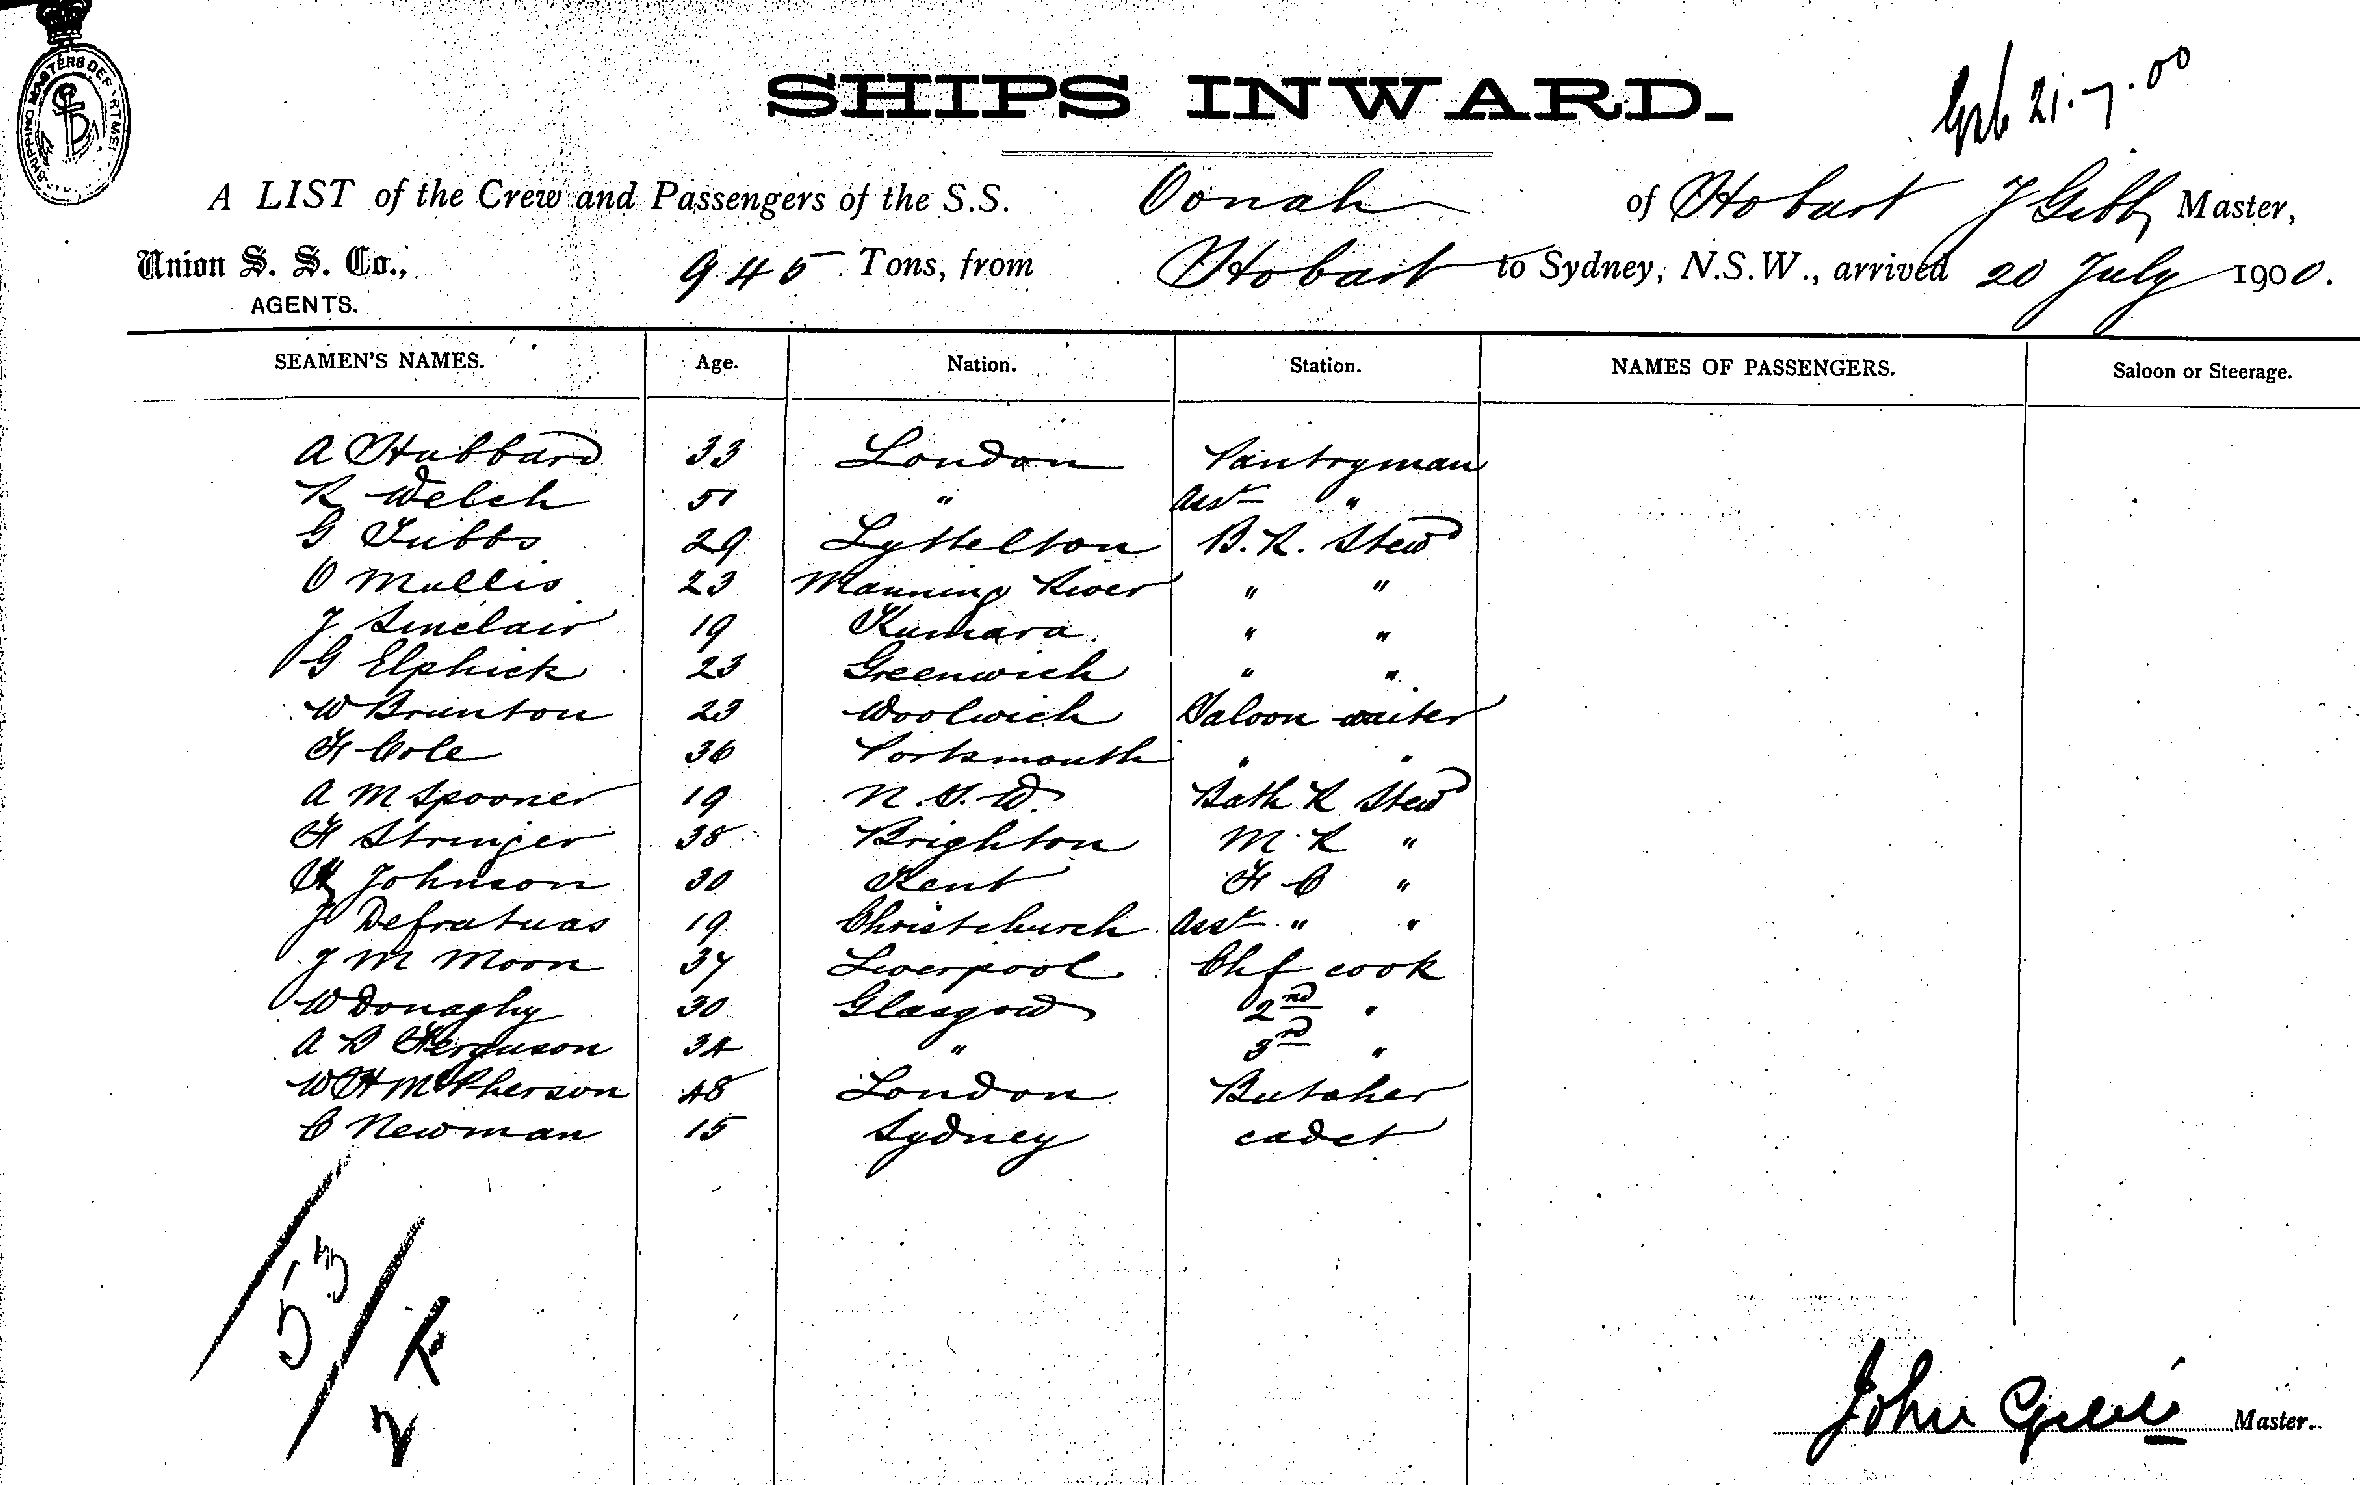 SHIPS INWARD.
21.7.00
A LIST of the Crew and Passengers of the S.S. Oonah of Hobart J Gibb Master,
Union S. S. Co., 945 Tons, from Hobart to Sydney, N.S.W., arrived 20 July 1900.
AGENTS.
SEAMEN'S NAMES. Age. Nation. Station. NAMES OF PASSENGERS. Saloon or Steerage.
A Hubbard 33 London Pantryman
R Welch 51 " Asst "
G Tubbs 29 Lyttelton B.R. Stewd
O Mullis 23 Manning River " "
J Sinclair 19 Kumara " "
G Elphick 23 Greenwich " "
W Brunton 23 Woolwich Saloon waiter
F Cole 36 Portsmouth " "
A M Spooner 19 N.S.W. Bath R Stewd
F Stringer 38 Brighton M.R "
Johnson 30 Kent F C "
J Defratuas 19 Christchurch Asst " "
J M Moon 37 Liverpool Chf cook
W Donaghy 30 Glasgow 2nd "
A D Ferguson 34 " 3rd "
W H McPherson 48 London Butcher
C Newman 15 Sydney cadet
53
John Gibb Master.